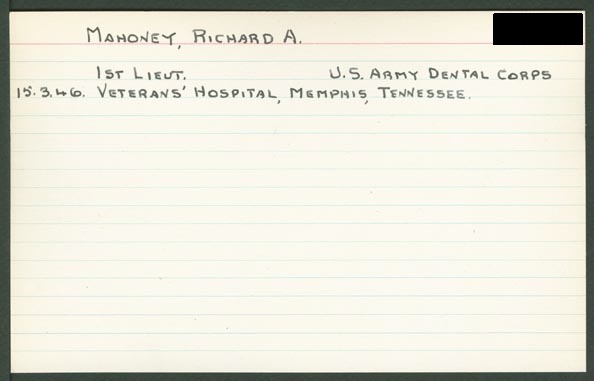 Mahoney, Richard A.
1st Lieut. U.S. Army Dental Corps
15.3.46. Veterans' Hospital, Memphis, Tennessee.